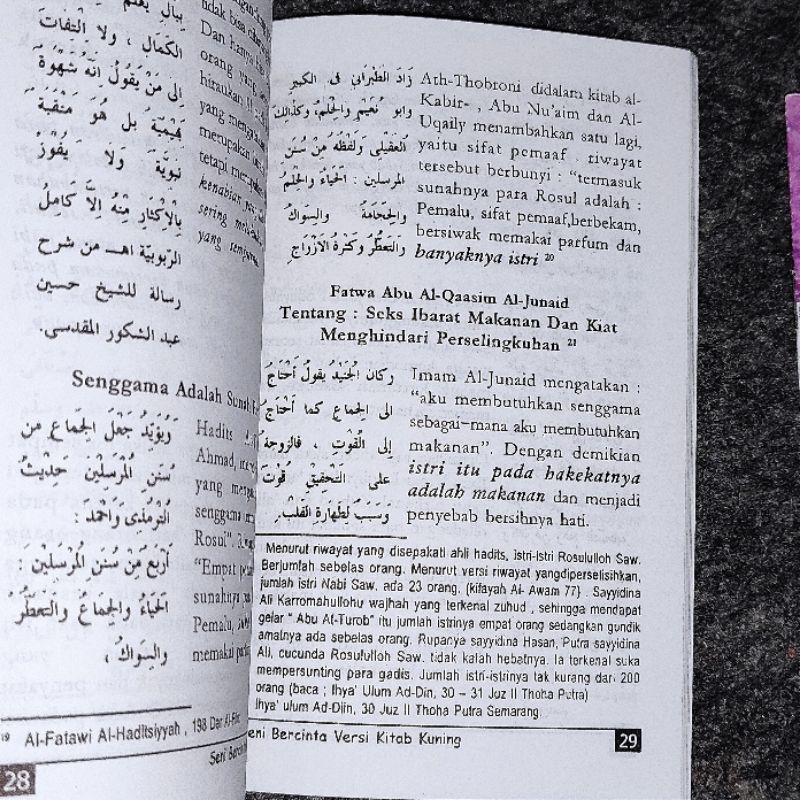 الكَمَالِ ، ولا التفات
إلى مَنْ يَقُولُ إنَّهُ شَهْوَةٌ
بَهِيْمِيَّةٌ بل هُوَ مَنْقَبَةٌ
نَبَوِيَّة وَلَا يَفُوْزُ
بِالْإِكْثَارِ مِنْهُ إلَّا كَامِلُ
الرّبوبيّة اهـ من شرح
رسالة للشيخ حسين
عبد الشكور المقدسى.
tidak bisa
Dan hanya
orang yang
hiraukan
yang
merupakan
tetapi
kenabian
sering
yang
Senggama Adalah
وَيُؤَيِّدُ جَعْلَ الجماع من
سُنَنِ الْمُرْسَلِيْنَ حَدِيْثُ
التِّرْمُذِى وَأَحْمَد :
أَرْبَعٌ مِنْ سُنَنِ الْمُرْسَلِيْنَ :
الحَيَاءُ وَالجِمَاعُ وَالتَّعَطُّرُ
والسِوَاكُ ،
Hadits
Ahmad,
yang
senggama
Rosul".
"Empat
sunahnya
Pemalu,
memakai
19 Al-Fatawi Al-Haditsiyyah , 198 Dar Al-
Seni
28
زَادَ الطَّبْرَانِي فى الكبير
وابو نُعَيْمٍ والحلم، وكذالك
العقيلى وَلَفْظُهُ مِنْ سُنَنِ
المرسلين : الحَيَاءُ وَالحِلْمُ
والحجَامَةُ والسِوَاكُ
وَالتَّعَطُّرُ وَكَثْرَةُ الأَزْوَاجِ
Ath-Thobroni didalam kitab al-
Kabir- , Abu Nu'aim dan Al-
Uqaily menambahkan satu lagi,
yaitu sifat pemaaf . riwayat
tersebut berbunyi : "termasuk
sunahnya para Rosul adalah :
Pemalu, sifat pemaaf,berbekam,
bersiwak memakai parfum dan
banyaknya istri 20
Fatwa Abu Al-Qaasim Al-Junaid
Tentang : Seks Ibarat Makanan Dan Kiat
Menghindari Perselingkuhan 21
وكان الجُنَيْدُ يقولُ أَحْتَاجُ
الى الجماع كما أَحْتَاجُ
إلى القُوْتِ ، فالزوجةُ
على التَّحْقِيْقِ قُوْتٌ
وَسَبَبٌ لِطَهَارَةِ القَلْبِ.
Imam Al-Junaid mengatakan :
"aku membutuhkan senggama
sebagai-mana aku membutuhkan
makanan". Dengan demikian
istri itu pada hakekatnya
adalah makanan dan menjadi
penyebab bersihnya hati.
Menurut riwayat yang disepakati ahli hadits, istri-istri Rosululloh Saw.
Berjumlah sebelas orang. Menurut versi riwayat yangdiperselisihkan,
jumlah istri Nabi Saw. ada 23 orang. (kifayah Al- Awam 77) . Sayyidina
Ali Karromahullohu wajhah yang terkenal zuhud , sehingga mendapat
gelar " Abu At-Turob" itu jumlah istrinya empat orang sedangkan gundik
amatnya ada sebelas orang. Rupanya sayyidina Hasan, Putra sayyidina
Ali, cucunda Rosululloh Saw. tidak kalah hebatnya. Ia terkenal suka
mempersunting para gadis. Jumlah istri-istrinya tak kurang dari 200
orang (baca ; Ihya' Ulum Ad-Din, 30 – 31 Juz II Thoha Putra)
Ihya' ulum Ad-Din, 30 Juz II Thoha Putra Semarang.
Seni Bercinta Versi Kitab Kuning
29